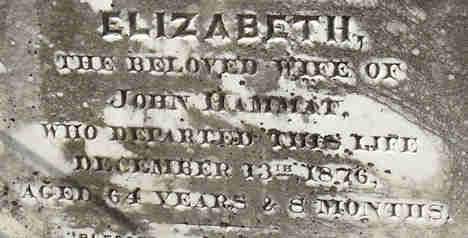 ELIZABETH,
THE BELOVED WIFE OF
JOHN HAMMAT,
WHO DEPARTED THIS LIFE
DECEMBER 13TH, 1876,
AGED 64 YEARS & 8 MONTHS.